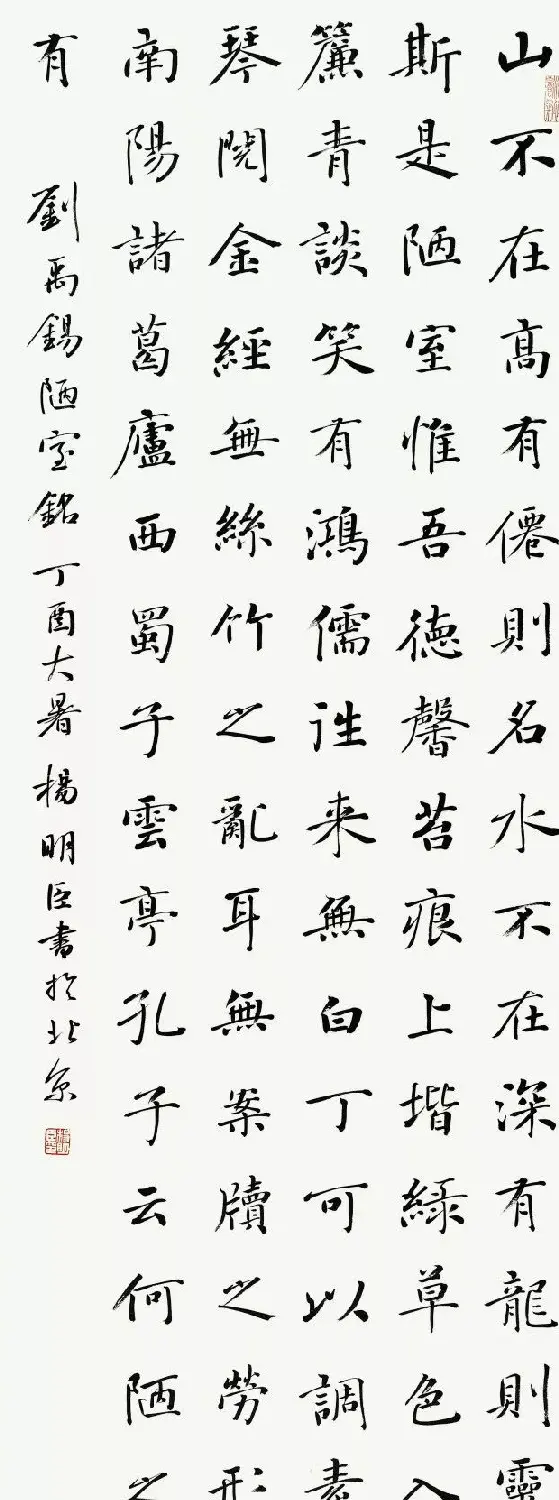 山不在高有僊則名水不在深有龍則靈
斯是陋室惟吾德馨苔痕上堦綠草色入
簾青談笑有鴻儒往来無白丁可以調素
琴閱金經無絲竹之亂耳無案牘之勞形
南陽諸葛廬西蜀子雲亭孔子云何陋之
有
劉禹錫陋室銘丁酉大暑楊明臣書於北京